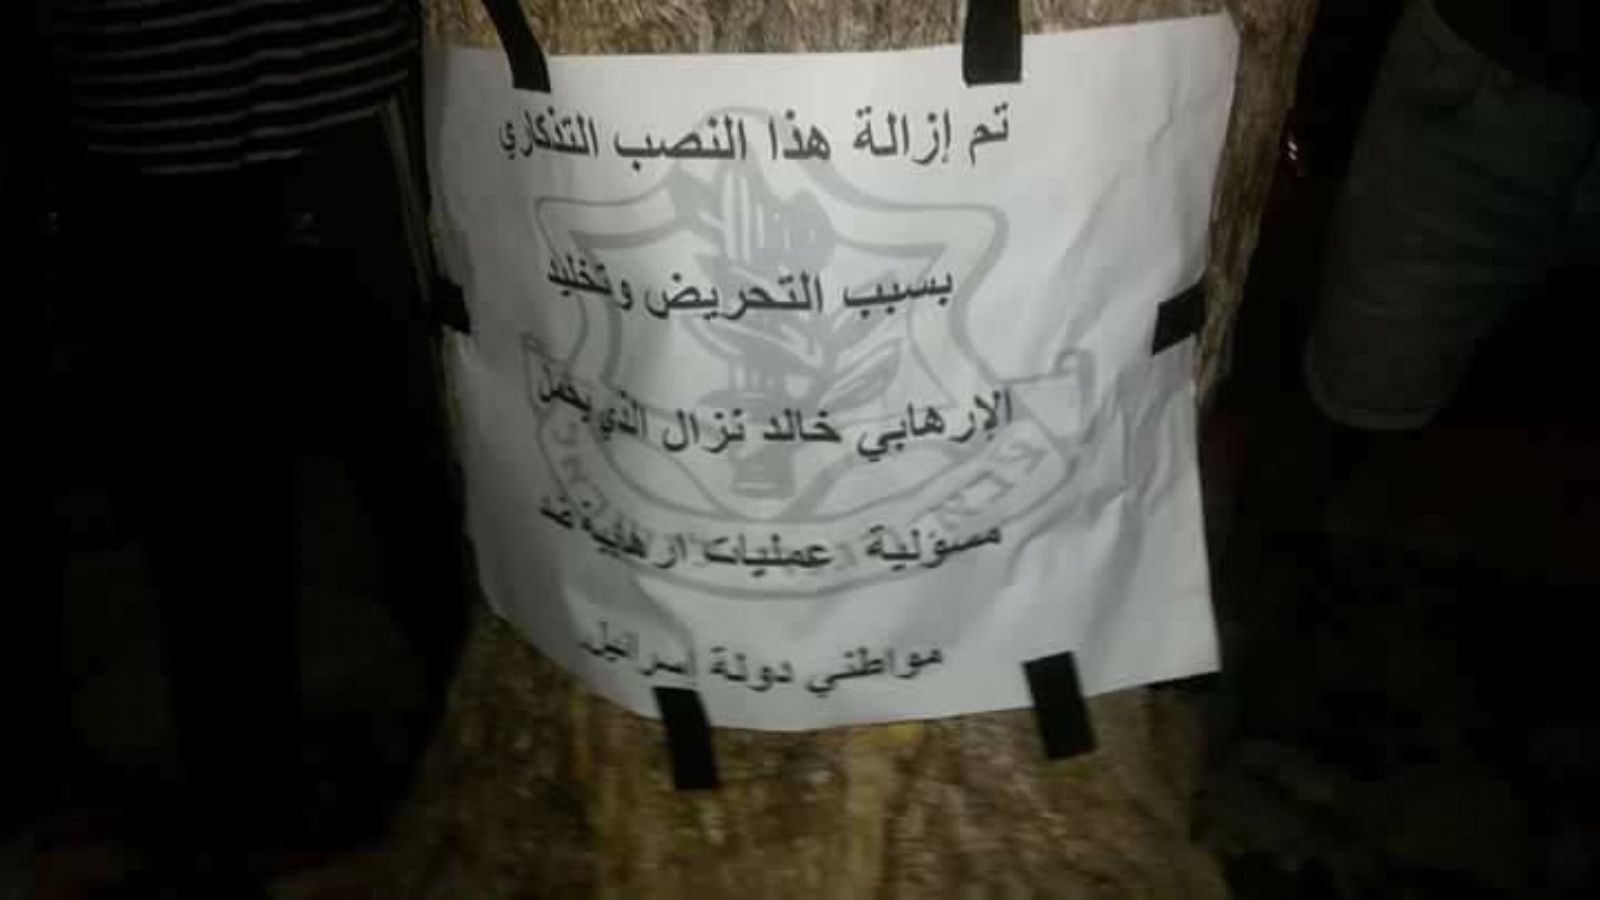 تم إزالة هذا النصب التذكاري
بسبب التحريض وتخليد
الإرهابي خالد نزال الذي يحمل
مسؤلية عمليات ارهابية ضد
مواطني دولة إسرائيل